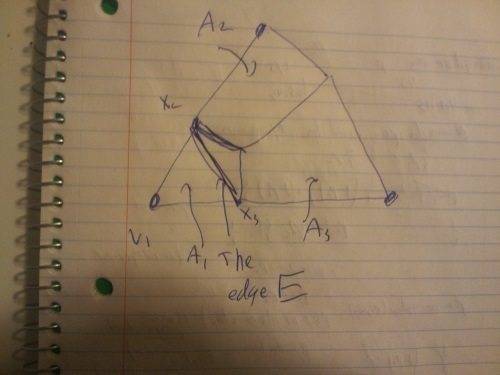 A2
X2
V1
X3
A1
The
A3
edge E